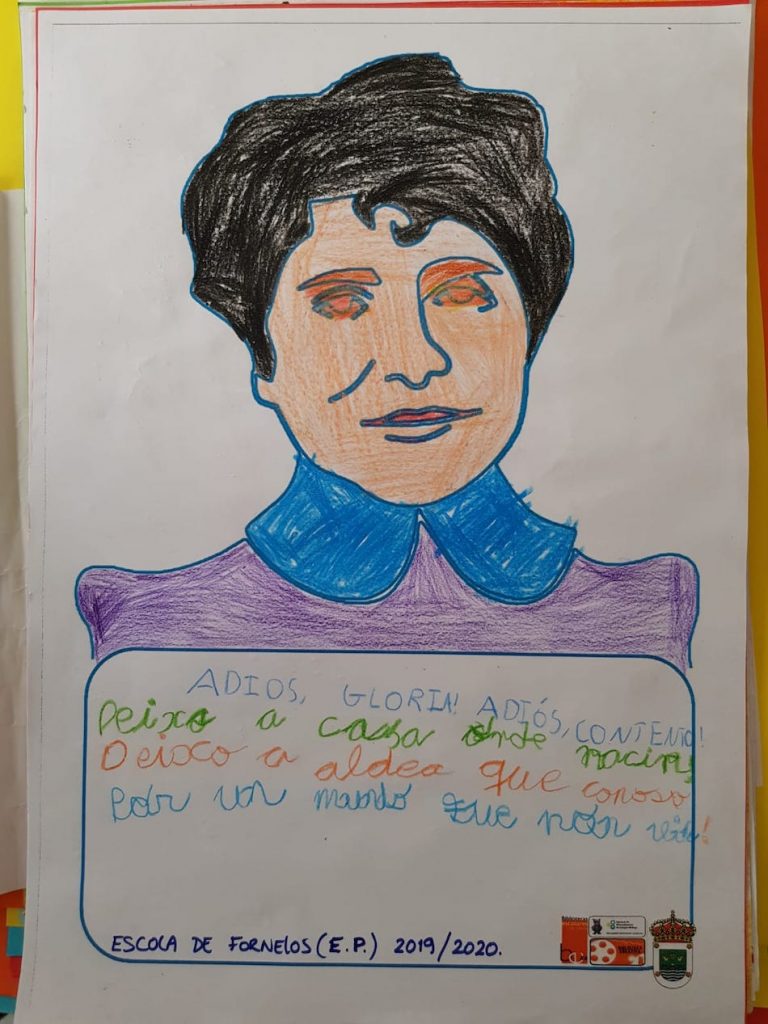 ADIOS, GLORIA! ADIÓS, CONTENTO!
Deixo a casa onde nacín,
Deixo a aldea que conoso
Por un mundo que non vin!
ESCOLA DE FORNELOS (E.P.) 2019/2020.